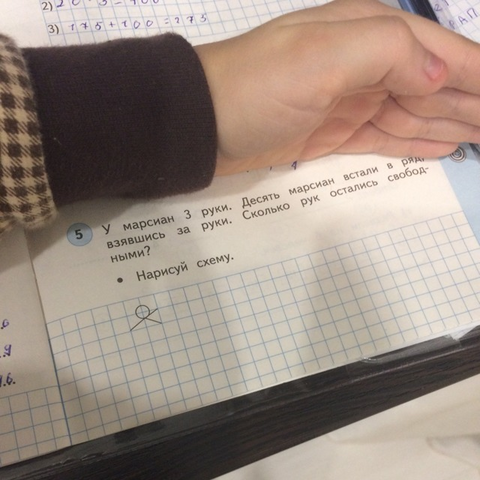 3) 175+100=275
5 У марсиан 3 руки. Десять марсиан встали в ряд,
взявшись за руки. Сколько рук остались свобод-
ными?
• Нарисуй схему.